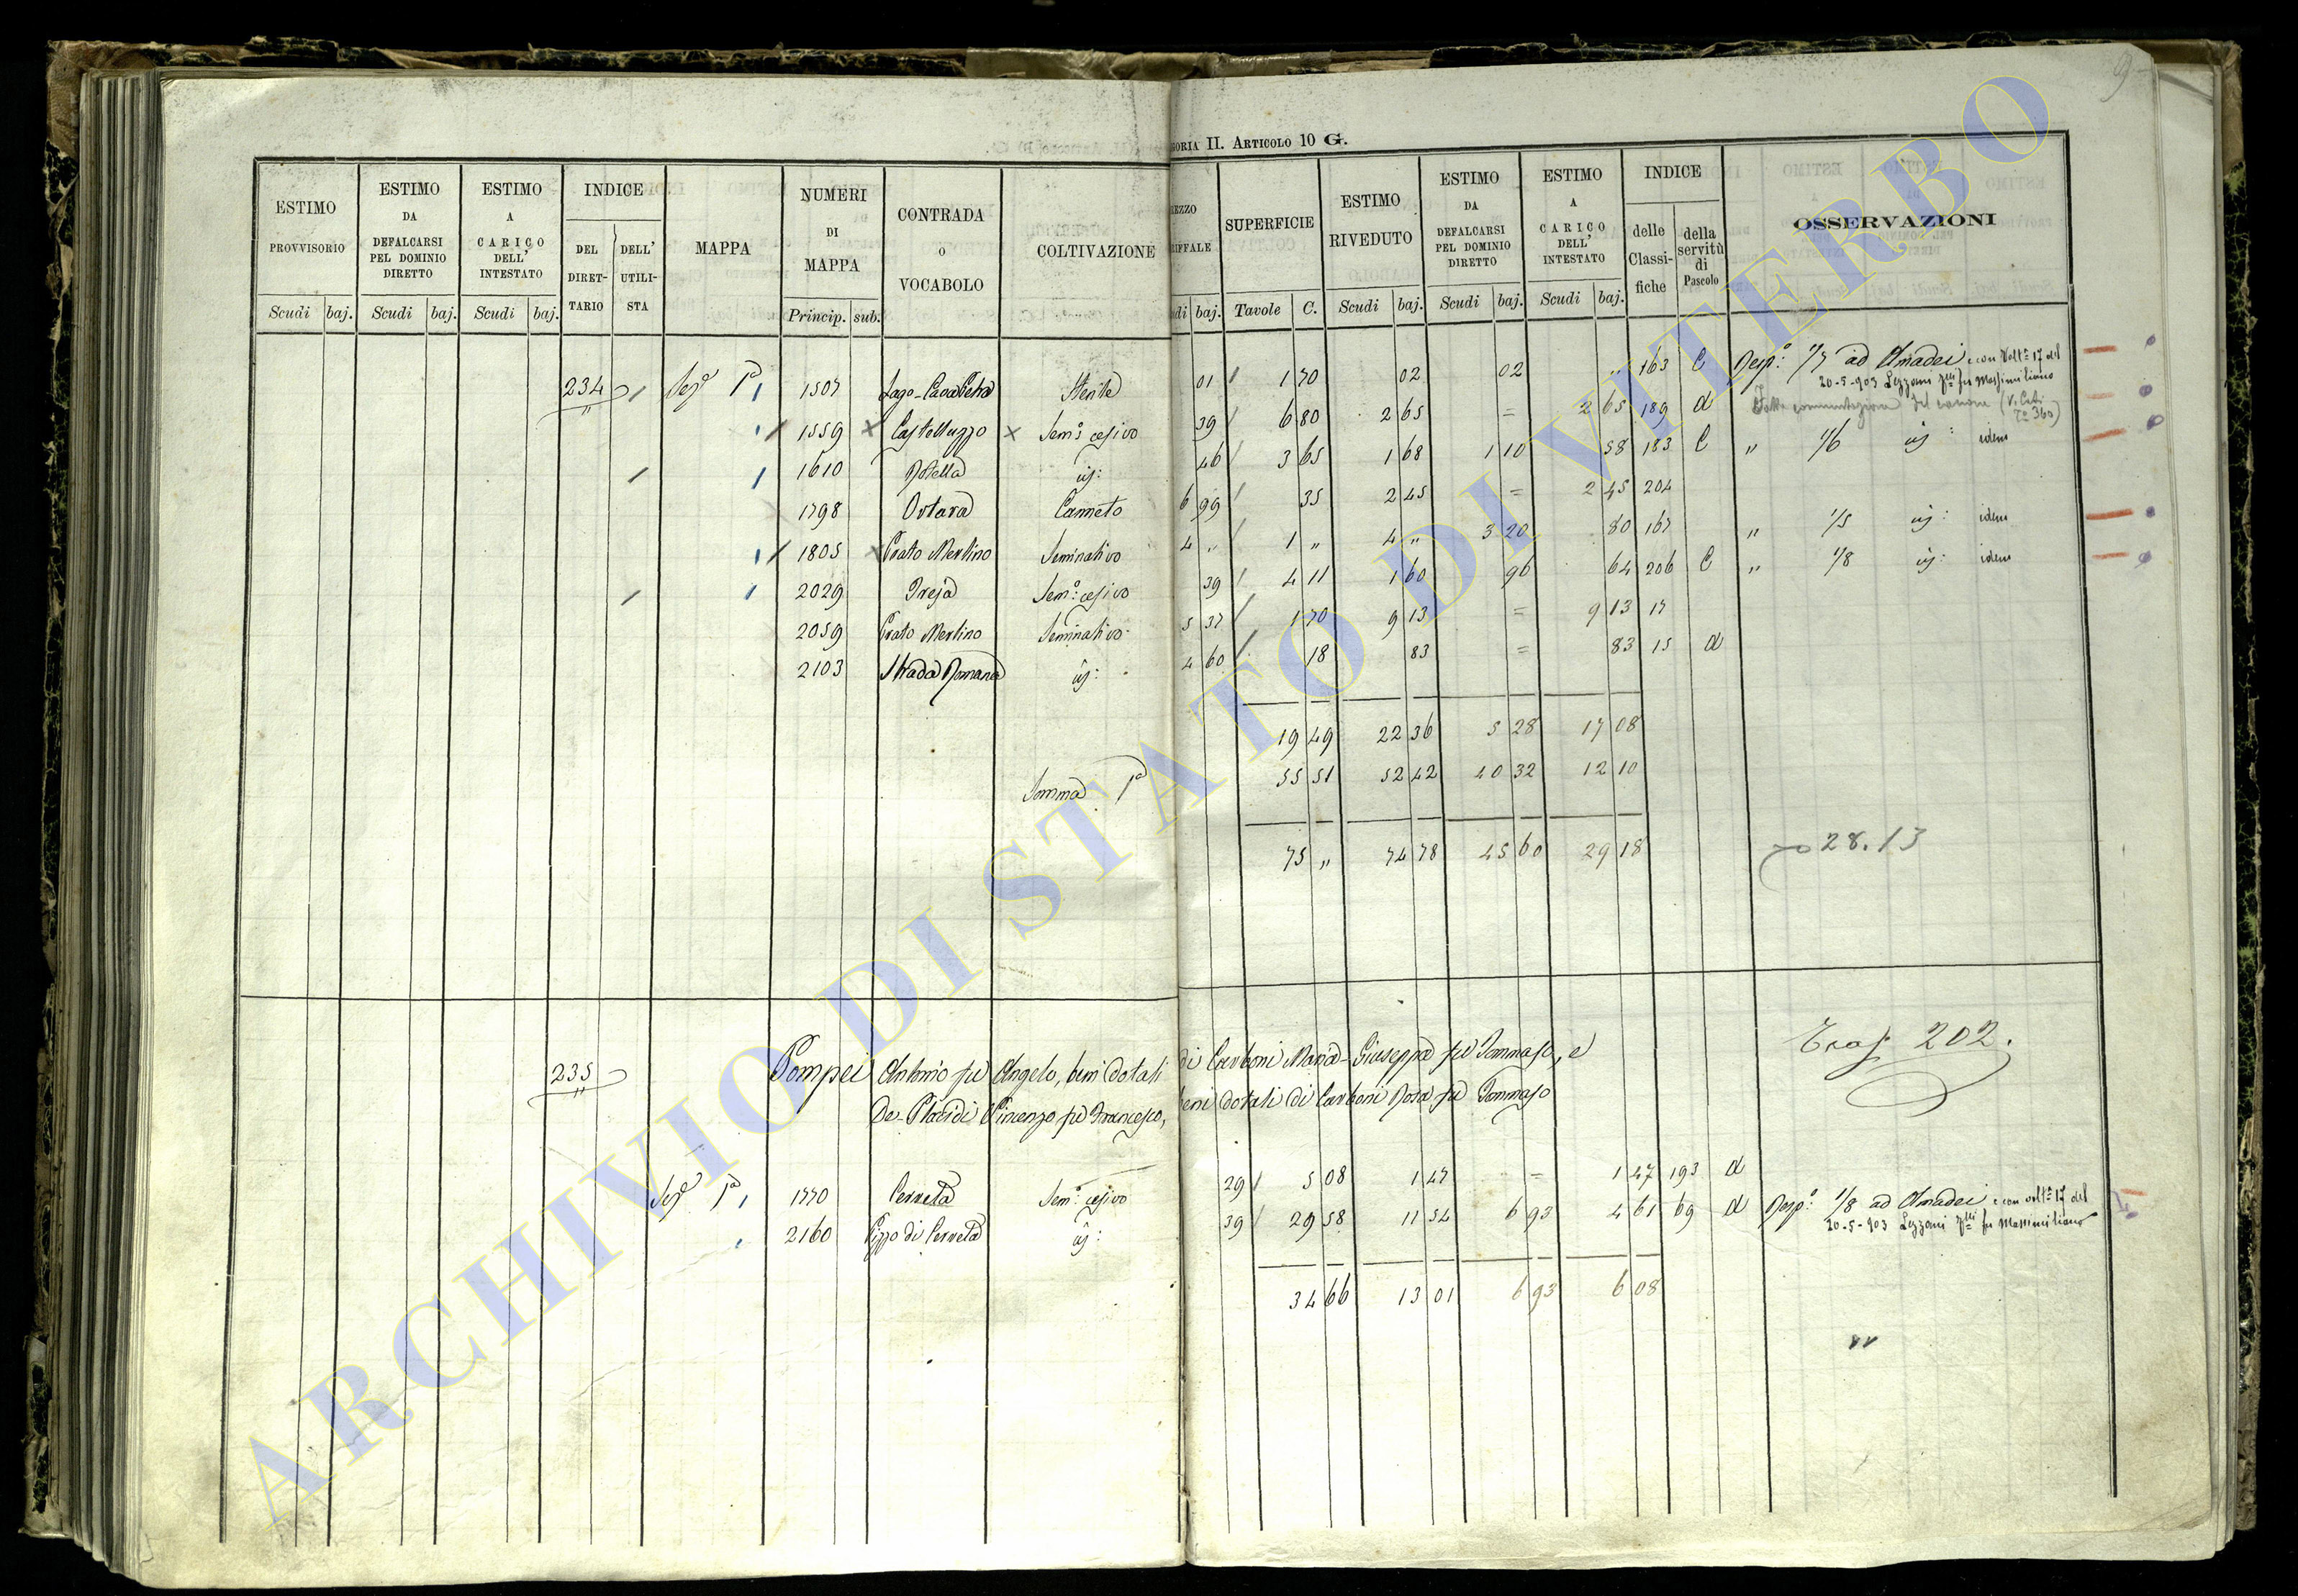 9
ORIA II. ARTICOLO 10 G.
ESTIMO PROVVISORIO
ESTIMO DA DEFALCARSI PEL DOMINIO DIRETTO
ESTIMO A CARICO DELL' INTESTATO
INDICE
DEL DIRETTARIO
DELL' UTILISTA
MAPPA
NUMERI DI MAPPA
CONTRADA O VOCABOLO
COLTIVAZIONE
EZZO RIFFALE
SUPERFICIE
ESTIMO RIVEDUTO
ESTIMO DA DEFALCARSI PEL DOMINIO DIRETTO
ESTIMO A CARICO DELL' INTESTATO
INDICE
delle Classifiche
della servitù di Pascolo
OSSERVAZIONI
Scudi baj. Scudi baj. Scudi baj. Princip. sub. di baj. Tavole C. Scudi baj. Scudi baj. Scudi baj.
234 Sez.e 1a 1507 Sterile 01 1 70 02 02 " 163 C Resp.o 1/7 ad Amadei e con Volt.a 17 del
20-5-903 Lezzani fu Massimiliano
1559 Castelluzzo Sem.o cesivo 39 6 80 2 65 = 2 65 189 d
1610 Rotella id: 46 3 65 1 68 1 10 58 183 C " 1/6 id: idem
1798 Ortara Canneto 6 99 35 2 45 = 2 45 204
1805 Prato Merlino Seminativo 4 " 1 " 4 " 3 20 80 167 " 1/5 id: idem
2029 Treja Sem.o cesivo 39 4 11 1 60 96 64 206 C " 1/8 id: idem
2059 Prato Merlino Seminativo 5 37 1 70 9 13 = 9 13 17
2103 Strada Romana id: 4 60 18 83 = 83 15 d
19 49 22 36 5 28 17 08
Somma 1a 55 51 52 42 40 32 12 10
75 " 74 78 45 60 29 18
28.13
235 Pompei Antonio fu Angelo, beni dotali di Carboni Maria-Giuseppa fu Tommaso, e
De-Placidi Vincenzo fu Francesco, beni dotali di Carboni Rosa fu Tommaso
Tras. 202.
Sez.e 1a 1770 Cerreta Sem.o cesivo 29 5 08 1 47 = 1 47 193 d
2160 Pizzo di Cerreta id: 39 29 58 11 54 6 93 4 61 69 d Resp.o 1/8 ad Amadei e con volt.a 17 del
20-5-903 Lezzani fu Massimiliano
34 66 13 01 6 93 6 08
ARCHIVIO DI STATO DI VITERBO